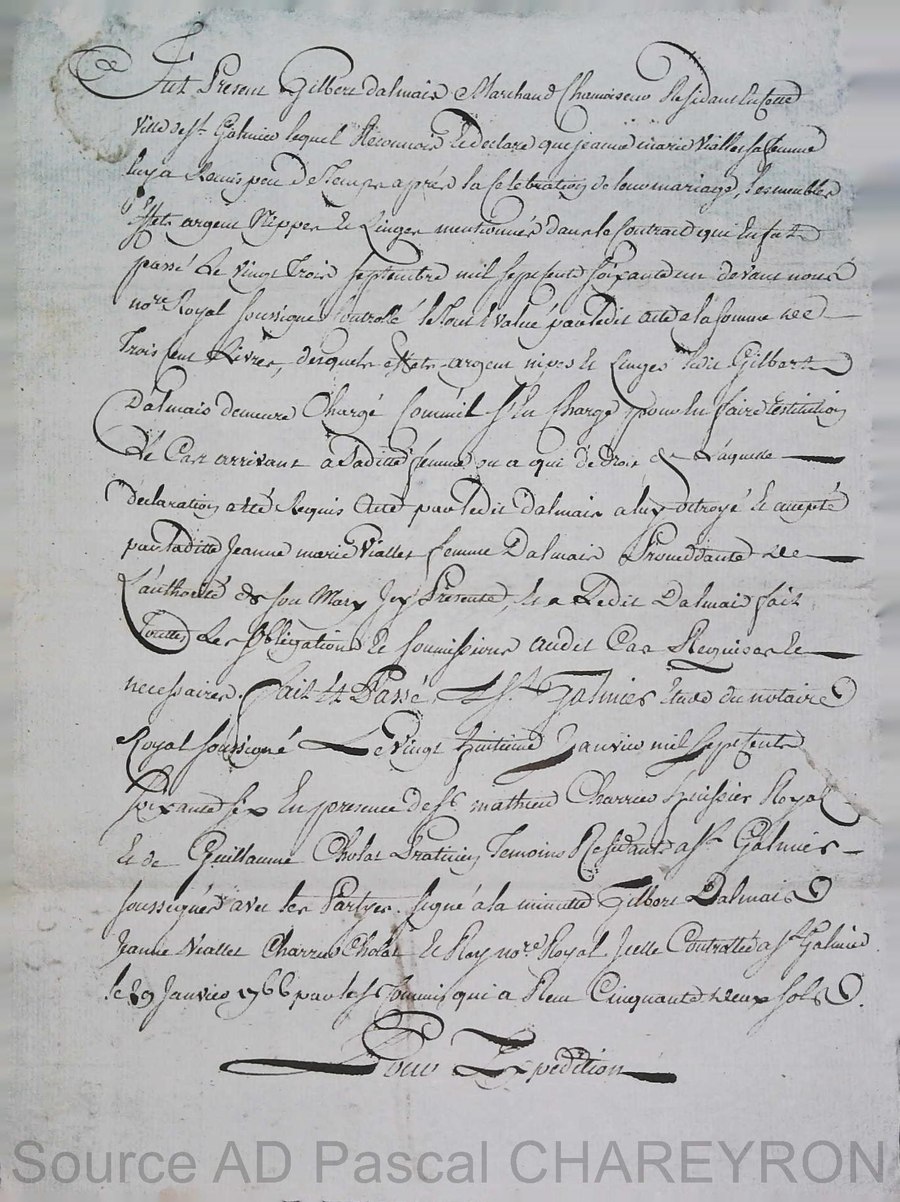 Fut Present Gilbert dalmais Marchand Chamoiseur Residant En cette
Ville de st. Galmier lequel Reconnois Et declare que jeanne marie Viallet sa femme
luy a Remis peu de Temps après la Celebration de leur mariage, les meubles
Effets argent Nippes Et Linges mentionnés dans le Contract qui En fut
passé Le vingt Trois septembre mil sept cents soixante un devant nous
nore Royal soussigné Controllé le tout Evalué par ledit acte a la somme de
Trois Cent Livres, desquels effets argent nipes Et Linges ledit Gilbert
Dalmais demeure Chargé Comm'il s'En Charge pour En faire Restitution
Le Cas arrivant a Saditte femme ou a qui de droit De Laquelle
declaration a été Requis Acte par ledit dalmais a luy Octroyé Et accepté
par laditte Jeanne marie Viallet femme Dalmais Proceddante de
L'authorité de son Mary Icy Presente, Et a Ledit Dalmais fait
Touttes Les Obligations Et soumissions audit Cas Requises Et
necessaires. fait Et Passé A St. Galmier Etude du notaire
Royal soussigné Le Vingt huitieme Janvier mil sept cents
soixante six En presence de sr. mathieu Charrier huissier Royal
Et de Guillaume Cholat Praticien Temoins Residants a st. Galmier
soussignés avec les Partyes. signé a la minutte Gilbert Dalmais
Jeanne Viallet Charrier Cholat Et Roy nore Royal, Icelle Controllée a st. Galmier
le 29 Janvier 1766 par le sr. qui a Reçu Cinquante deux sols
Pour Expedition
Source AD Pascal CHAREYRON